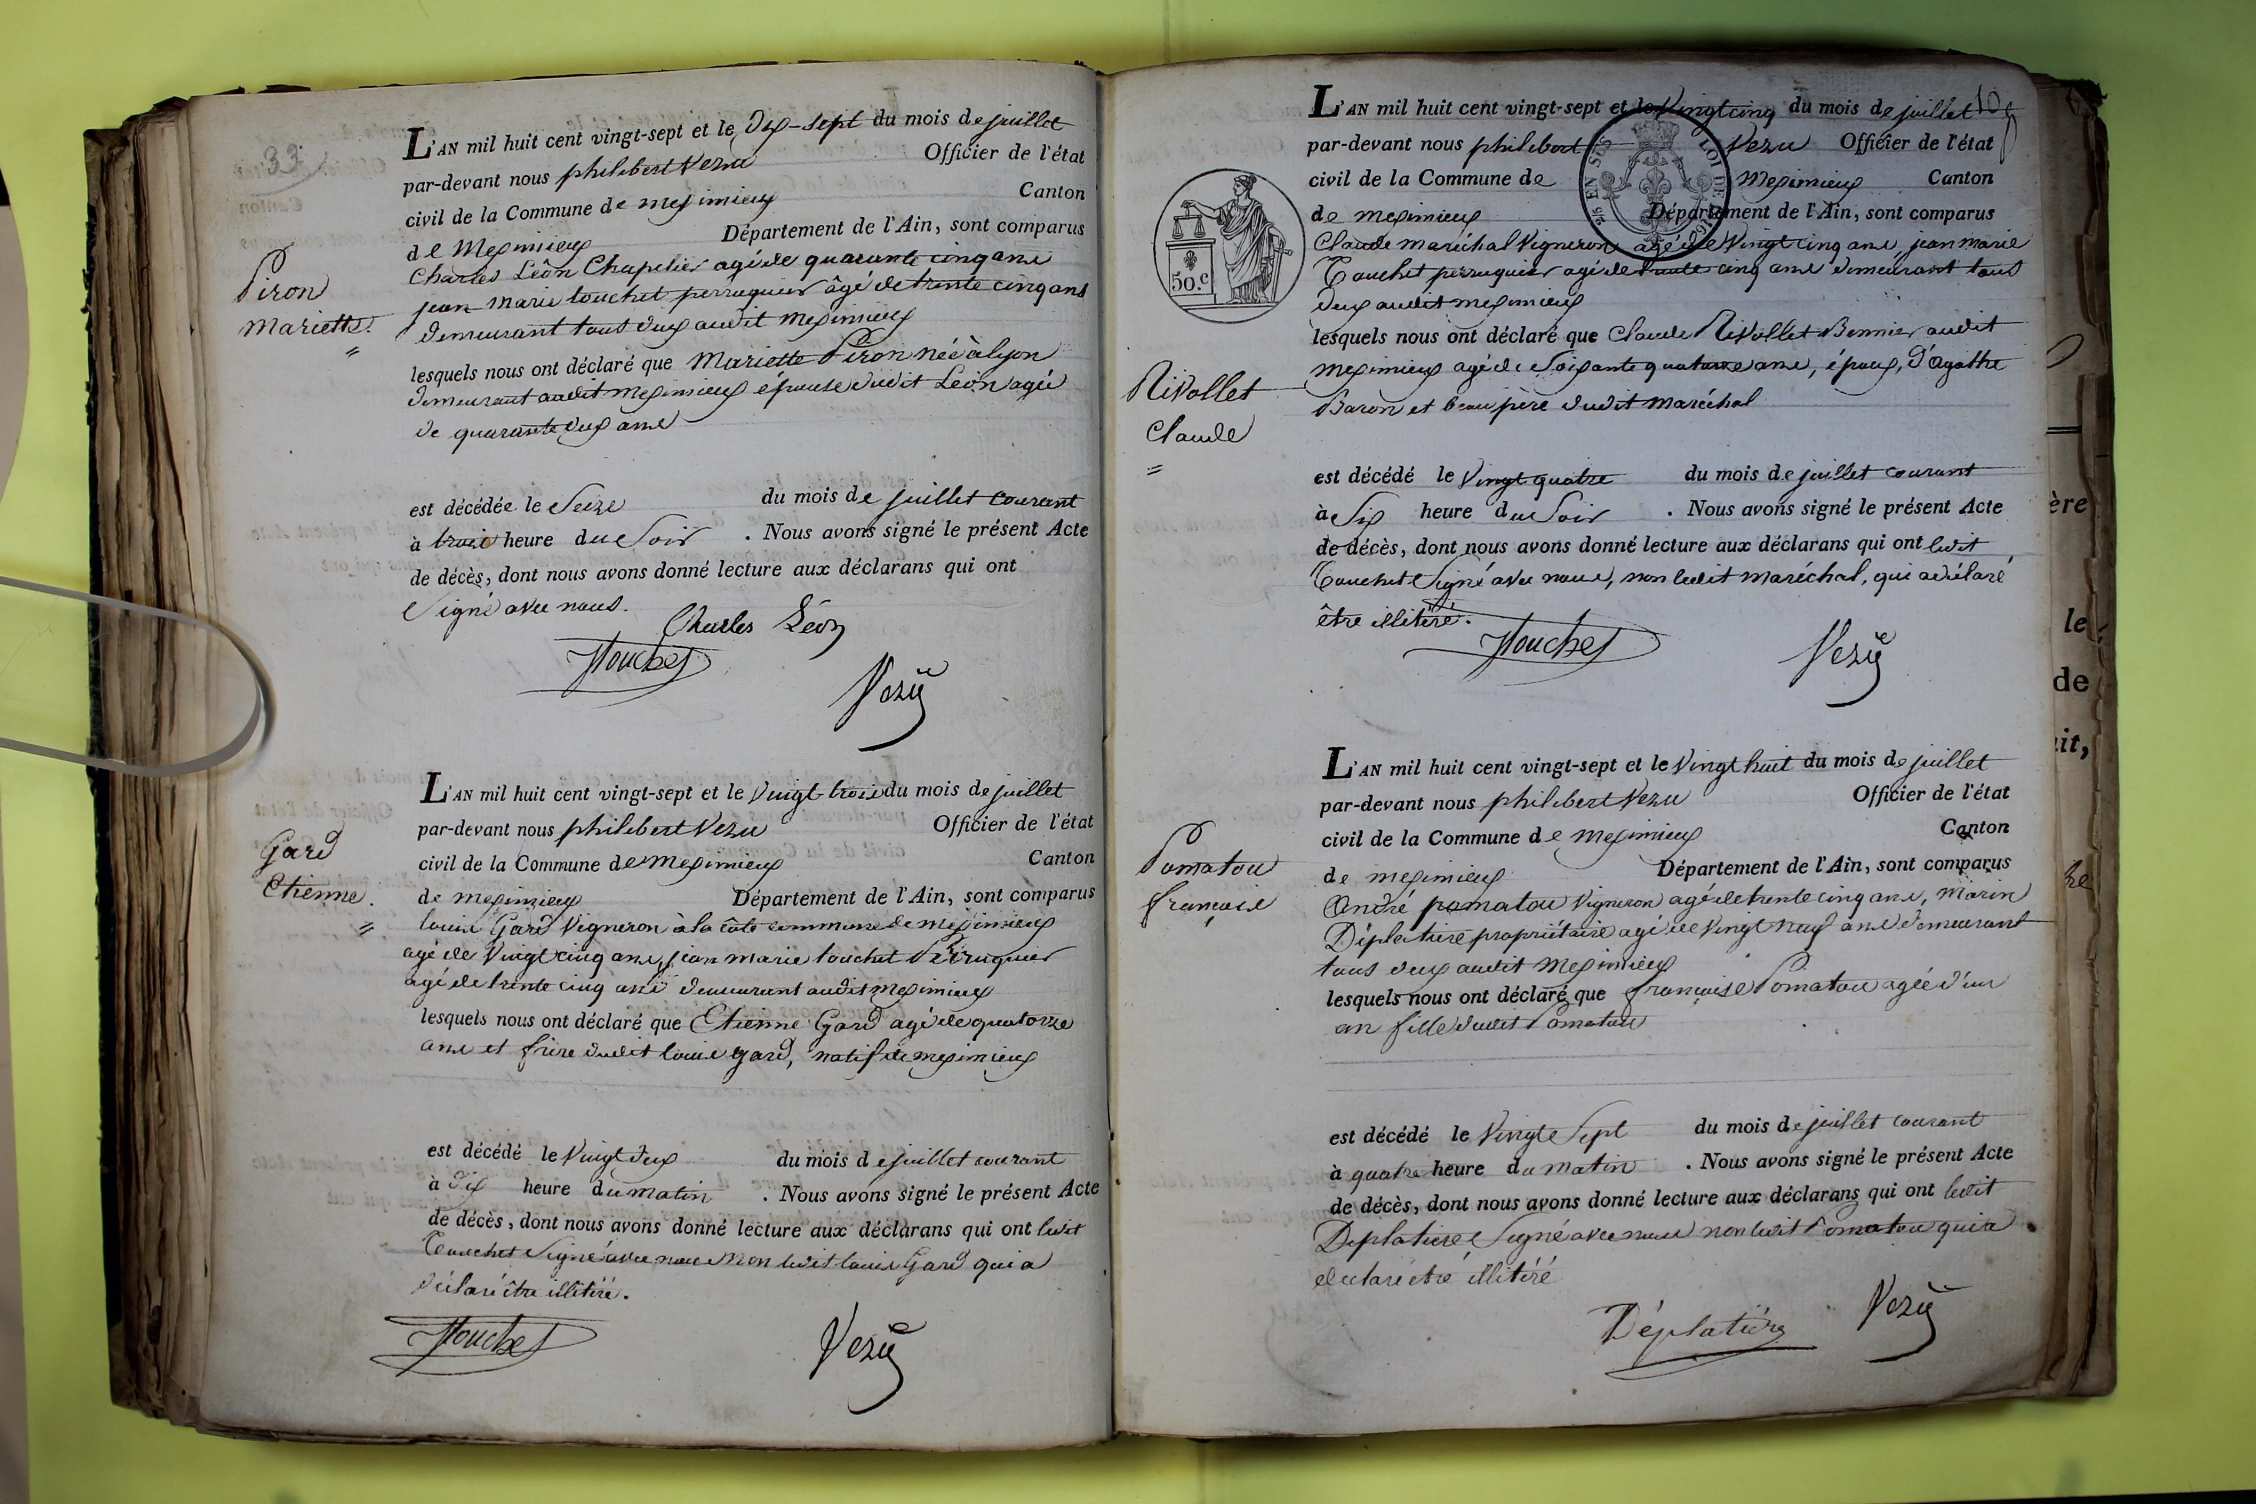 33
L'AN mil huit cent vingt-sept et le Dix-sept du mois de juillet
par-devant nous philibert Vezu Officier de l'état
civil de la Commune de meximieux Canton
de Meximieux Département de l'Ain, sont comparus
Charles Léon Chapelier agé de quarante cinq ans
jean marie touchet perruquier âgé de trente cinq ans
demeurant tous deux audit meximieux
lesquels nous ont déclaré que Mariette Piron née à lyon
demeurant audit meximieux épouse dudit Léon agée
de quarante deux ans
Piron
Mariette.
est décédée le Seize du mois de juillet courant
à trois heure du Soir . Nous avons signé le présent Acte
de décès, dont nous avons donné lecture aux déclarans qui ont
Signé avec nous.
Charles Léon
Touchet
Vezu
L'AN mil huit cent vingt-sept et le Vingt trois du mois de juillet
par-devant nous philibert Vezu Officier de l'état
civil de la Commune de Meximieux Canton
de meximieux Département de l'Ain, sont comparus
louis Gard Vigneron à la côte commune de meximieux
agé de Vingt cinq ans, jean marie touchet Perruquier
agé de trente cinq ans demeurant audit meximieux
lesquels nous ont déclaré que Etienne Gard agé de quatorze
ans et frère dudit louis gard, natif de meximieux
Gard
Etienne.
est décédé le Vingt deux du mois de juillet courant
à dix heure du matin . Nous avons signé le présent Acte
de décès, dont nous avons donné lecture aux déclarans qui ont ledit
Touchet Signé avec nous Non ledit louis Gard qui a
déclaré être illitéré.
Touchet
Vezu
L'AN mil huit cent vingt-sept et le Vingt cinq du mois de juillet
par-devant nous philibert Vezu Officier de l'état
civil de la Commune de Meximieux Canton
de meximieux Département de l'Ain, sont comparus
Claude maréchal Vigneron agé de Vingt cinq ans, jean marie
Touchet perruquier agé de trente cinq ans demeurant tous
deux audit meximieux
lesquels nous ont déclaré que Claude Rivollet Bennier audit
meximieux agé de Soixante quatorze ans, époux, d'agathe
Baron et beau père dudit maréchal
50.c
LOI DE
Rivollet
Claude
est décédé le Vingt quatre du mois de juillet courant
à Six heure du Soir . Nous avons signé le présent Acte
de décès, dont nous avons donné lecture aux déclarans qui ont ledit
Touchet Signé avec nous, non ledit maréchal, qui a déclaré
être illitéré.
Touchet
Vezu
L'AN mil huit cent vingt-sept et le Vingt huit du mois de juillet
par-devant nous philibert Vezu Officier de l'état
civil de la Commune de meximieux Canton
de meximieux Département de l'Ain, sont comparus
André pomatou Vigneron agé de trente cinq ans, Marin
Déplatiere propriétaire agé de Vingt neuf ans demeurant
tous deux audit Meximieux
lesquels nous ont déclaré que françoise Pomatou agée d'un
an fille dudit Pomatou
Pomatou
françoise
est décédé le Vingt Sept du mois de juillet courant
à quatre heure du matin . Nous avons signé le présent Acte
de décès, dont nous avons donné lecture aux déclarans qui ont ledit
Deplatiere Signé avec nous non ledit Pomatou qui a
declaré être illitéré
Déplatière
Vezu
ère
le
de
it,